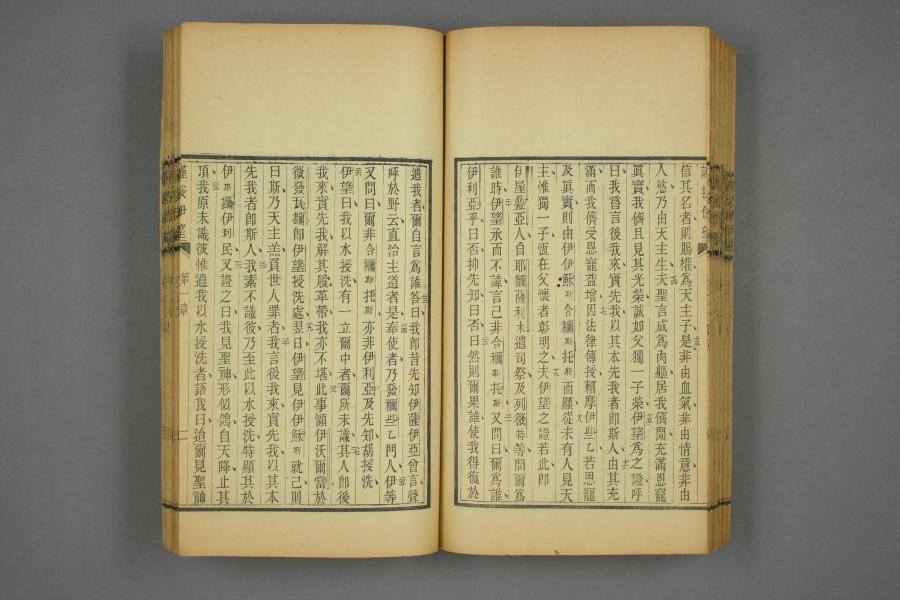 信其名者則賜權爲天主子是非由血氣非由情意非由
人慾乃由天主生夫聖言成爲肉軀居我儕間充滿恩寵
眞實我儕且見其光榮誠如父獨一子榮伊望爲之證呼
曰我嘗言後我來實先我以其本先我者卽斯人由其充
滿而我儕受恩寵益增因法律傳授賴摩伊些乙若恩寵
及眞實則由伊伊穌斯合穪斯托斯而顯從未有人見天
主惟獨一子恆在父懷者彰明之夫伊望之證若此卽
伊屋疊亞人自耶羅薩利木遣司祭及列微特等問爾爲
誰時伊望承而不諱言己非合穪斯托斯又問曰爾爲誰
伊利亞乎曰否抑先知曰否曰然則爾果誰使我得復於
遣我者爾自言爲誰答曰我卽昔先知伊薩伊亞曾言聲
呼於野云直治主道者是奉使者乃發穪些乙門人伊等
又問曰爾非合穪斯托斯亦非伊利亞及先知胡授洗
伊望曰我以水授洗有一立爾中者爾所未識其人卽後
我來實先我解其履革帶我亦不堪此事瀕伊沃爾當於
微發瓦攔卽伊望授洗處翌日伊望見伊伊穌斯就己則
曰斯乃天主羔負世人罪者我言後我來實先我以其本
先我者卽斯人我素不識彼乃至此以水授洗特顯其於
伊斯攔伊利民又證之曰我見聖神形似鴿自天降止其
頂我原未識彼惟遣我以水授洗者語我曰迨爾見聖神
第一章